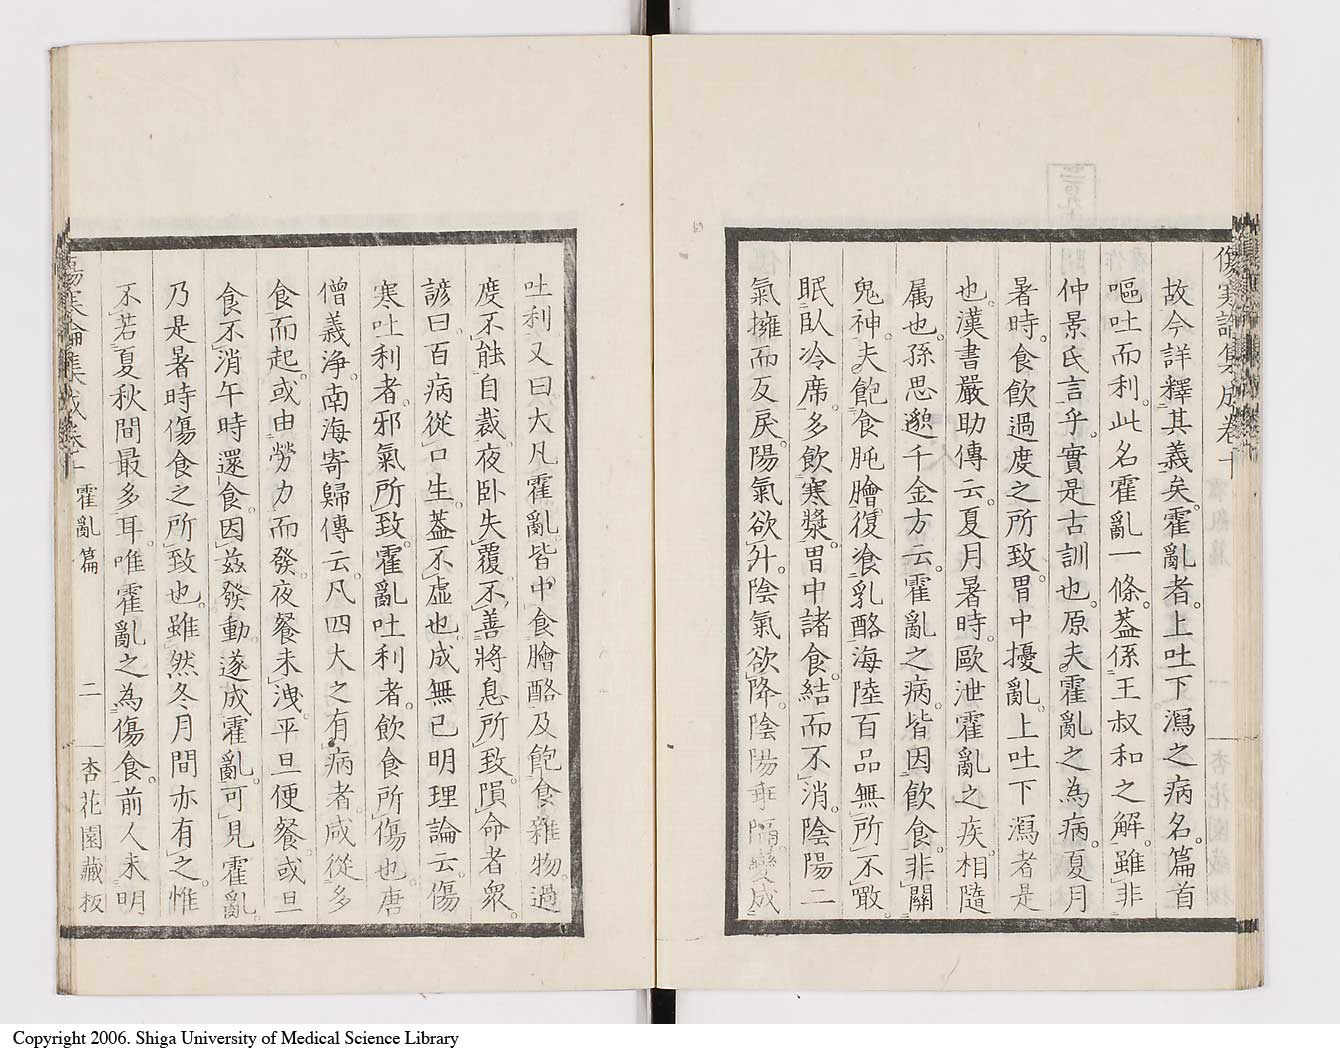 傷寒論集成卷十
故今詳釋其義矣霍亂者上吐下瀉之病名篇首
嘔吐而利此名霍亂一條蓋係王叔和之解雖非
仲景氏言乎實是古訓也原夫霍亂之為病夏月
暑時食飲過度之所致胃中擾亂上吐下瀉者是
也漢書嚴助傳云夏月暑時歐泄霍亂之疾相隨
属也孫思邈千金方云霍亂之病皆因飲食非關
鬼神夫飽食肫膾復飡乳酪海陸百品無所不噉
眠臥冷席多飲寒漿胃中諸食結而不消陰陽二
氣擁而反戾陽氣欲升陰氣欲降陰陽乖隔變成
吐利又曰大凡霍亂皆中食膾酪及飽食雜物過
度不能自裁夜卧失覆不善將息所致隕命者衆
諺曰百病從口生蓋不虛也成無已明理論云傷
寒吐利者邪氣所致霍亂吐利者飲食所傷也唐
僧義浄南海寄歸傳云凡四大之有病者咸從多
食而起或由勞力而發夜餐未洩平旦便餐或旦
食不消午時還食因茲發動遂成霍亂可見霍亂
乃是暑時傷食之所致也雖然冬月間亦有之惟
不若夏秋間最多耳唯霍亂之為傷食前人未明
傷寒論集成卷十 霍亂篇 二 杏花園藏板
Copyright 2006. Shiga University of Medical Science Library